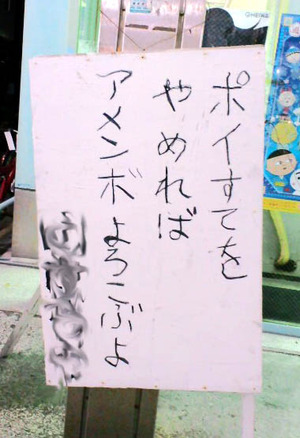 ポイすてを
やめれば
アメンボよろこぶよ